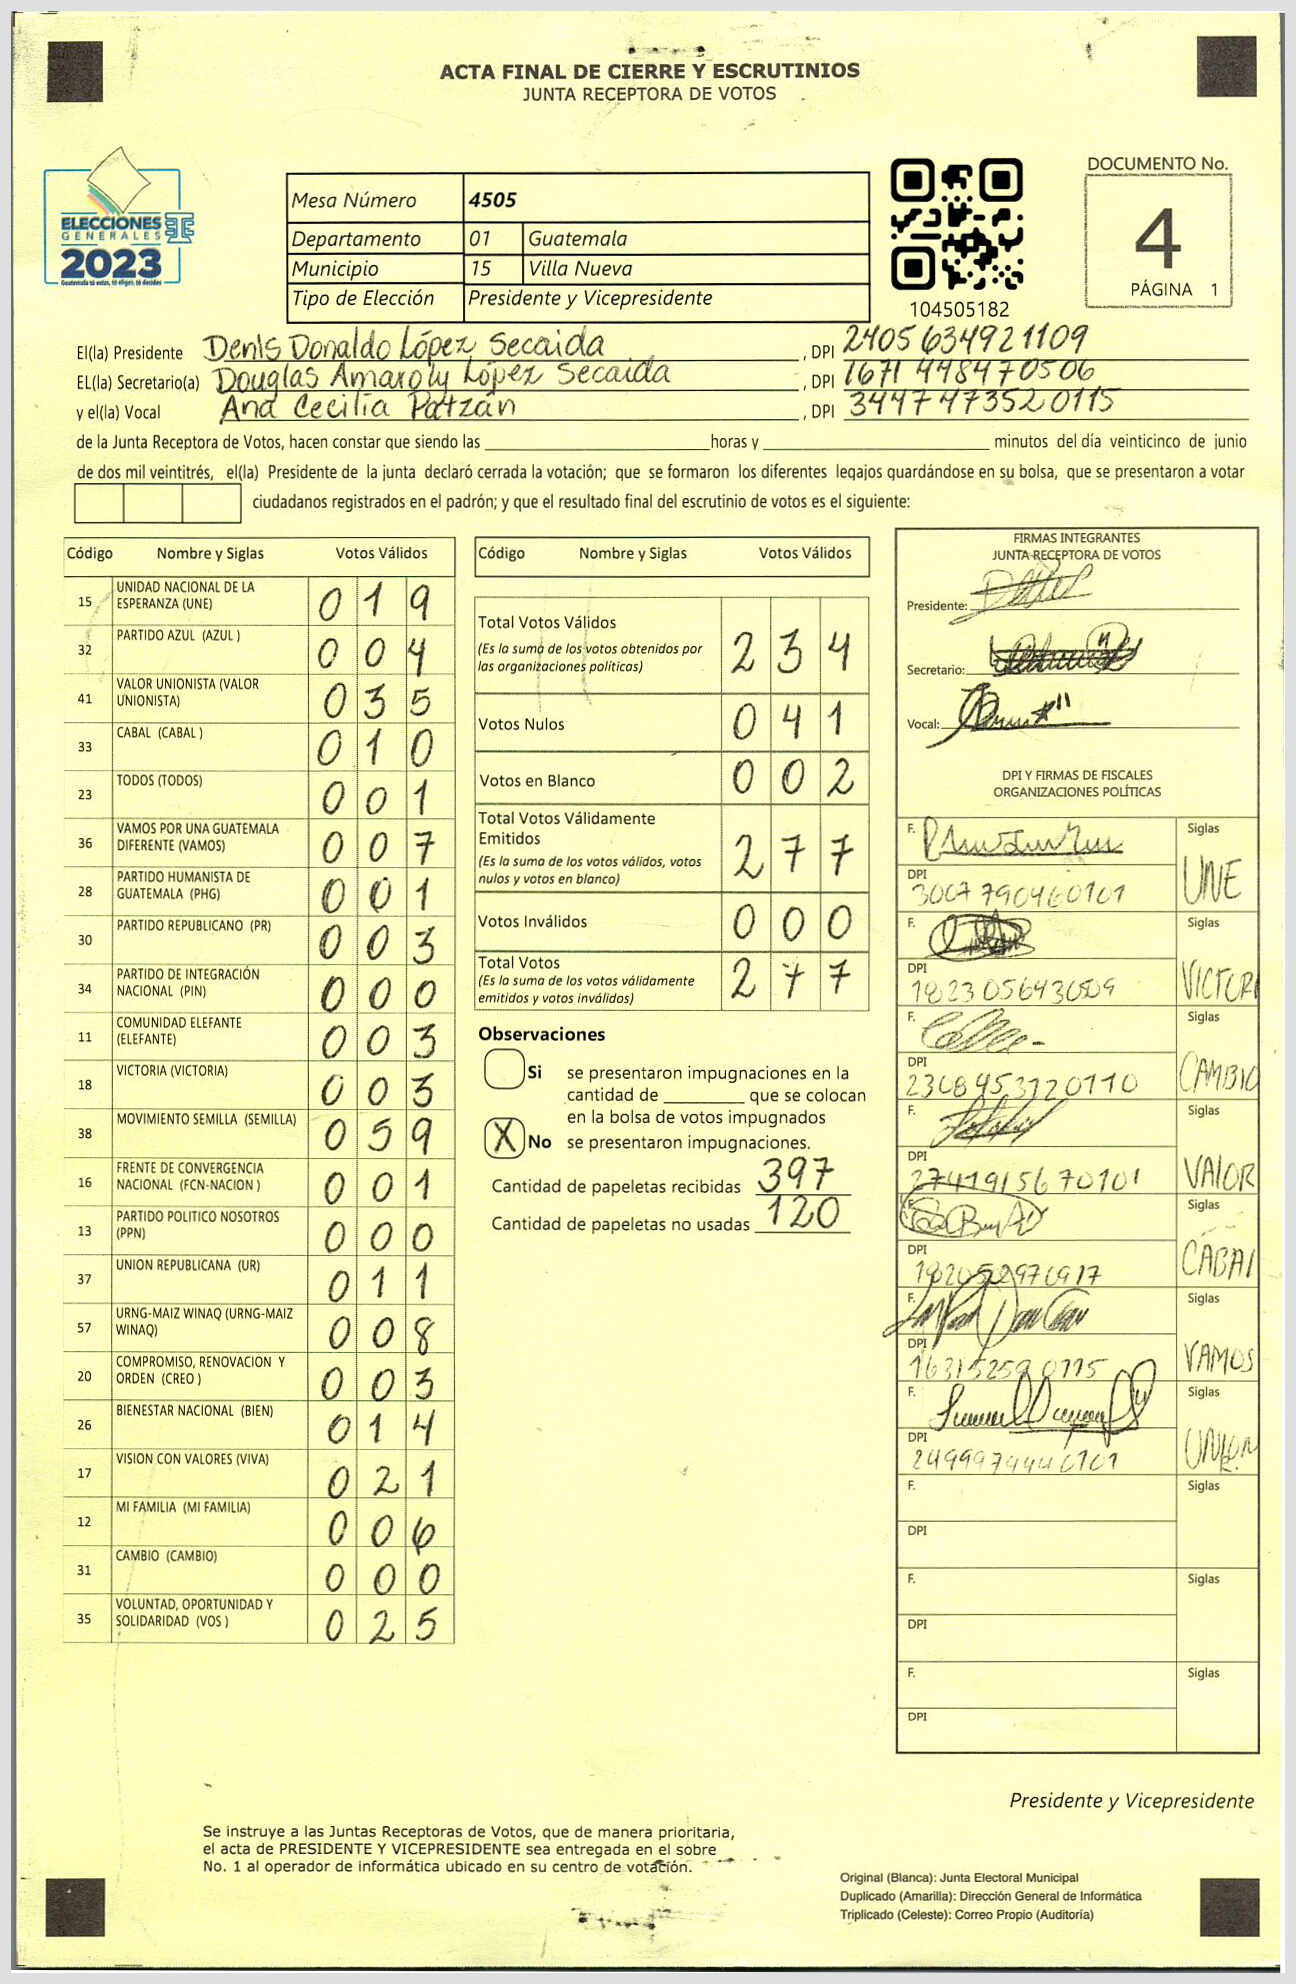 ACTA FINAL DE CIERRE Y ESCRUTINIOS
JUNTA RECEPTORA DE VOTOS
ELECCIONES
GENERALES
2023
Guatemala tú votas, tú eliges, tú decides
Mesa Número 4505
Departamento 01 Guatemala
Municipio 15 Villa Nueva
Tipo de Elección Presidente y Vicepresidente
104505182
DOCUMENTO No.
4
PÁGINA 1
El(la) Presidente Denis Donaldo López Secaida, DPI 2405634921109
EL(la) Secretario(a) Douglas Amaroly López Secaida, DPI 1671448470506
y el(la) Vocal Ana Cecilia Patzán, DPI 3447473520115
de la Junta Receptora de Votos, hacen constar que siendo las horas y minutos del día veinticinco de junio
de dos mil veintitrés, el(la) Presidente de la junta declaró cerrada la votación; que se formaron los diferentes legajos quardándose en su bolsa, que se presentaron a votar
ciudadanos registrados en el padrón; y que el resultado final del escrutinio de votos es el siguiente:
Código Nombre y Siglas Votos Válidos
15 UNIDAD NACIONAL DE LA ESPERANZA (UNE) 0 1 9
32 PARTIDO AZUL (AZUL ) 0 0 4
41 VALOR UNIONISTA (VALOR UNIONISTA) 0 3 5
33 CABAL (CABAL ) 0 1 0
23 TODOS (TODOS) 0 0 1
36 VAMOS POR UNA GUATEMALA DIFERENTE (VAMOS) 0 0 7
28 PARTIDO HUMANISTA DE GUATEMALA (PHG) 0 0 1
30 PARTIDO REPUBLICANO (PR) 0 0 3
34 PARTIDO DE INTEGRACIÓN NACIONAL (PIN) 0 0 0
11 COMUNIDAD ELEFANTE (ELEFANTE) 0 0 3
18 VICTORIA (VICTORIA) 0 0 3
38 MOVIMIENTO SEMILLA (SEMILLA) 0 5 9
16 FRENTE DE CONVERGENCIA NACIONAL (FCN-NACION ) 0 0 1
13 PARTIDO POLITICO NOSOTROS (PPN) 0 0 0
37 UNION REPUBLICANA (UR) 0 1 1
57 URNG-MAIZ WINAQ (URNG-MAIZ WINAQ) 0 0 8
20 COMPROMISO, RENOVACION Y ORDEN (CREO ) 0 0 3
26 BIENESTAR NACIONAL (BIEN) 0 1 4
17 VISION CON VALORES (VIVA) 0 2 1
12 MI FAMILIA (MI FAMILIA) 0 0 6
31 CAMBIO (CAMBIO) 0 0 0
35 VOLUNTAD, OPORTUNIDAD Y SOLIDARIDAD (VOS ) 0 2 5
Código Nombre y Siglas Votos Válidos
Total Votos Válidos 2 3 4
(Es la suma de los votos obtenidos por
las organizaciones políticas)
Votos Nulos 0 4 1
Votos en Blanco 0 0 2
Total Votos Válidamente
Emitidos 2 7 7
(Es la suma de los votos válidos, votos
nulos y votos en blanco)
Votos Inválidos 0 0 0
Total Votos 2 7 7
(Es la suma de los votos válidamente
emitidos y votos inválidos)
Observaciones
Si se presentaron impugnaciones en la
cantidad de que se colocan
en la bolsa de votos impugnados
X No se presentaron impugnaciones.
Cantidad de papeletas recibidas 397
Cantidad de papeletas no usadas 120
FIRMAS INTEGRANTES
JUNTA RECEPTORA DE VOTOS
Presidente:
Secretario:
Vocal:
DPI Y FIRMAS DE FISCALES
ORGANIZACIONES POLÍTICAS
F. Siglas
DPI UNE
3007790460101
F. Siglas
DPI VICTORI
F. Siglas
DPI CAMBIO
F. Siglas
DPI VALOR
2741915670101
F. Siglas
DPI CABAL
F. Siglas
DPI VAMOS
F. Siglas
DPI
F. Siglas
DPI
F. Siglas
DPI
F. Siglas
DPI
Presidente y Vicepresidente
Se instruye a las Juntas Receptoras de Votos, que de manera prioritaria,
el acta de PRESIDENTE Y VICEPRESIDENTE sea entregada en el sobre
No. 1 al operador de informática ubicado en su centro de votación.
Original (Blanca): Junta Electoral Municipal
Duplicado (Amarilla): Dirección General de Informática
Triplicado (Celeste): Correo Propio (Auditoría)